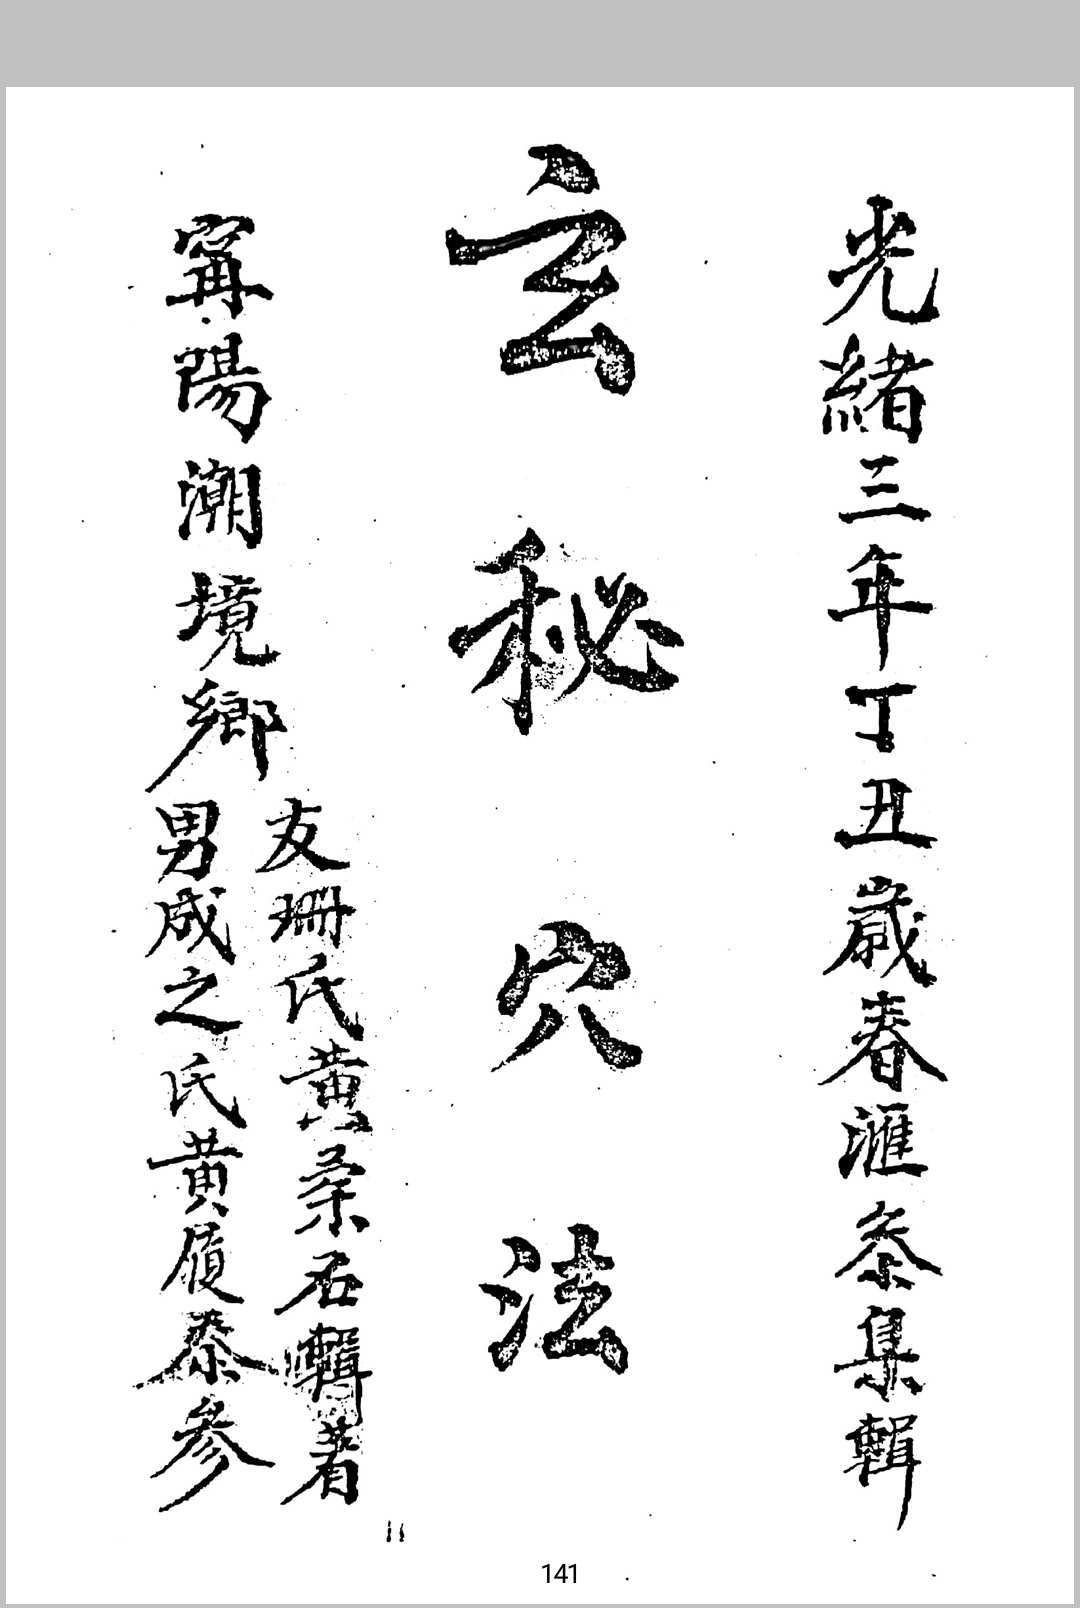 光緒三年丁丑歲春滙叅集輯
玄秘穴法
甯陽潮境鄉
友珊氏黃桒石輯著
男成之氏黃履泰參
141